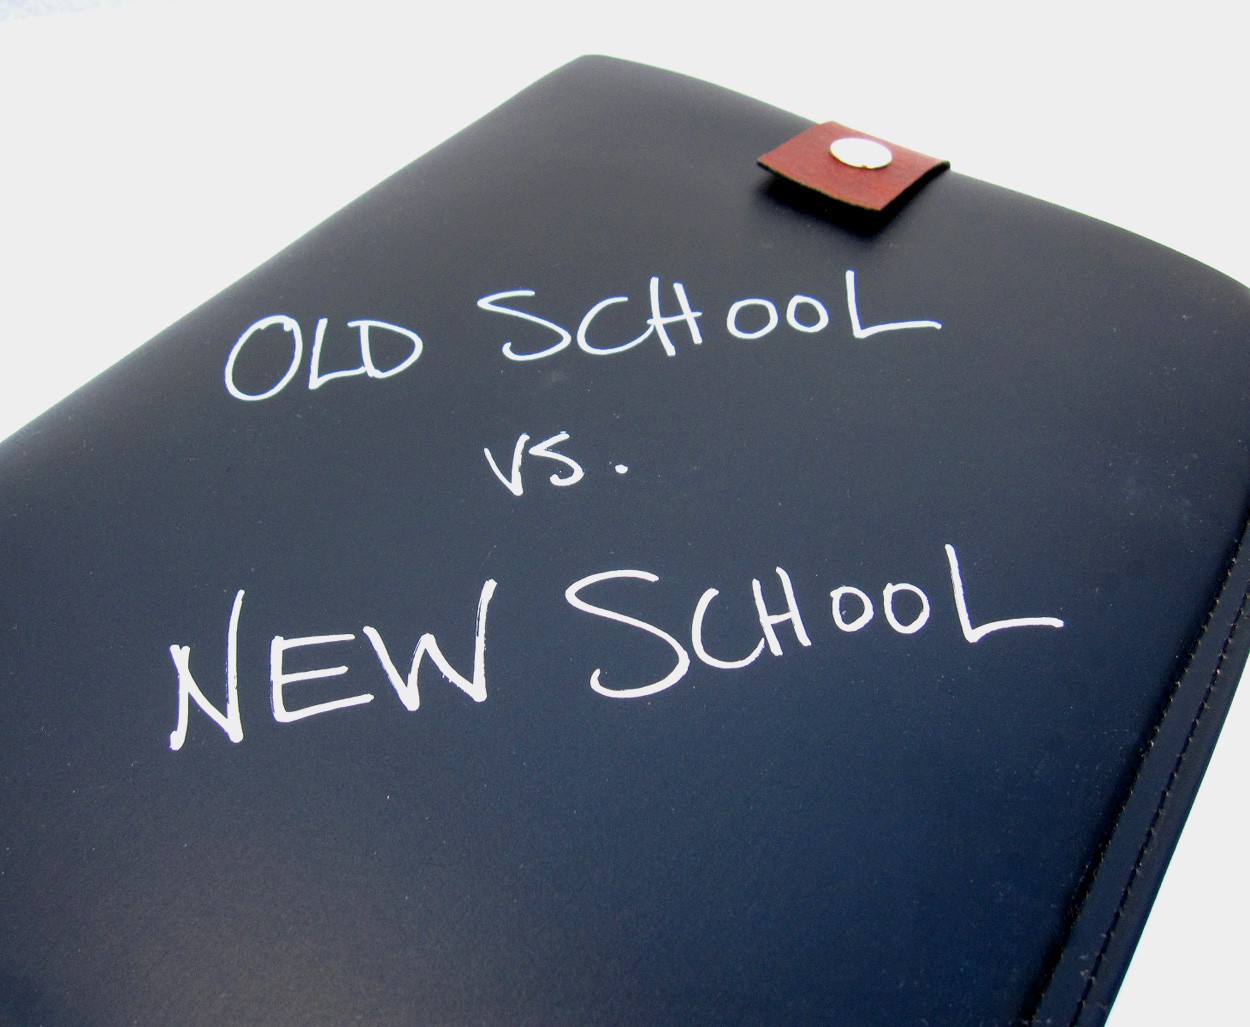 OLD SCHOOL
vs.
NEW SCHOOL